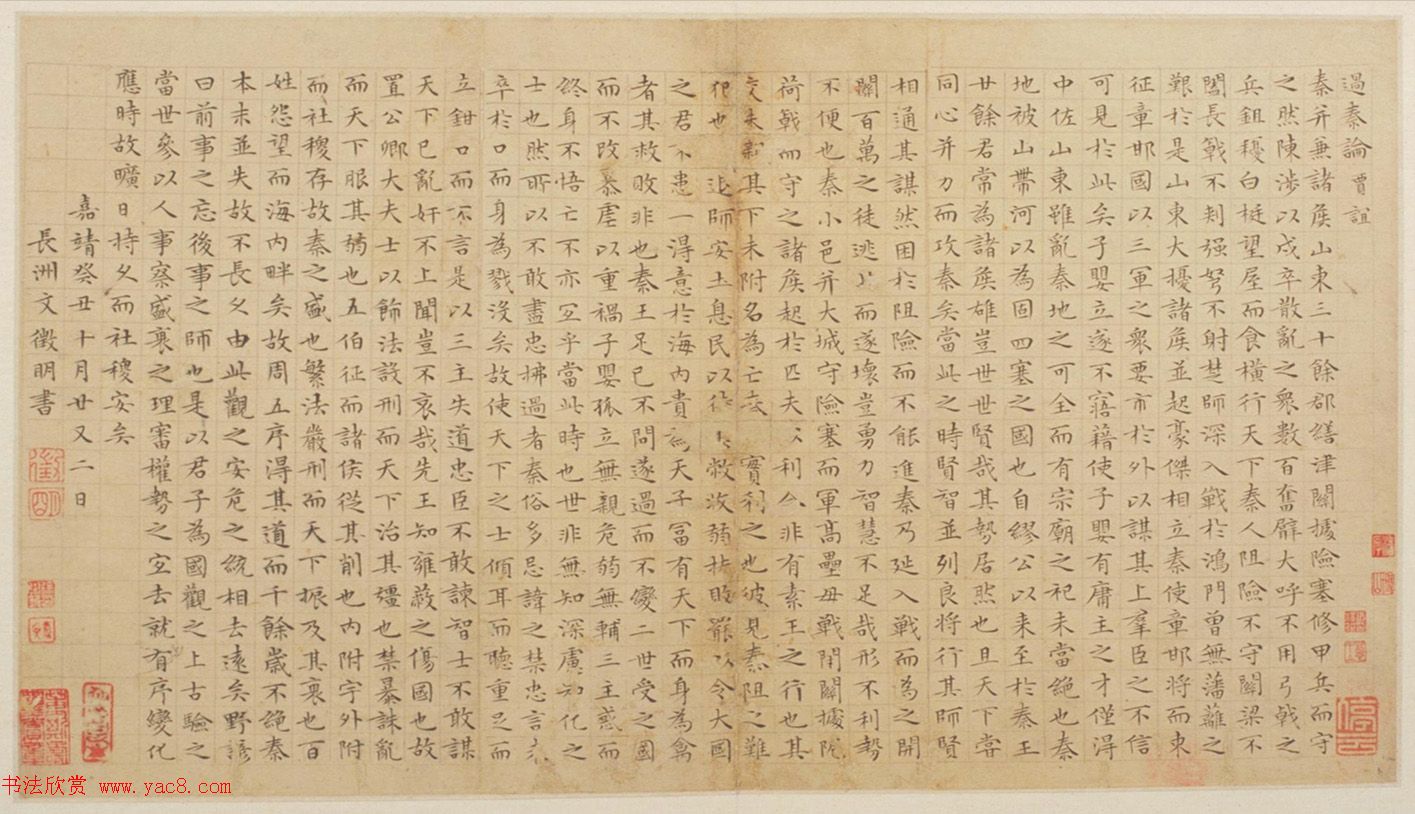 過秦論 賈誼
秦并兼諸矦山東三十餘郡繕津關據險塞修甲兵而守
之然陳涉以戍卒散亂之衆數百奮臂大呼不用弓戟之
兵鉏耰白梃望屋而食橫行天下秦人阻險不守關梁不
闔長戟不刺强弩不射楚師深入戰於鴻門曽無藩蘺之
艱於是山東大擾諸矦並起豪傑相立秦使章邯将而東
征章邯國以三軍之衆要市於外以謀其上羣臣之不信
可見於此矣子嬰立遂不寤藉使子嬰有庸主之才僅得
中佐山東雖亂秦地之可全而有宗廟之祀未當絶也秦
地被山帶河以為固四塞之國也自繆公以来至於秦王
廿餘君常為諸矦雄豈世世賢哉其勢居然也且天下甞
同心并力而攻秦矣當此之時賢智並列良将行其師賢
相通其謀然困於阻險而不能進秦乃延入戰而為之開
關百萬之徒逃而遂壞豈勇力智慧不足哉形不利勢
不便也秦小邑并大城守險塞而軍高壘毋戰閉關據阨
荷戟而守之諸矦起於匹夫利合非有素王之行也其
交未親其下未附名為亡實利之也彼見秦阻之難
犯也退師安土息民以待敝收弱扶罷以令大國
之君不患一得意於海内貴為天子富有天下而身為禽
者其救敗非也秦王足己不問遂過而不變二世受之國
而不改暴虐以重禍子嬰孤立無親危弱無輔三主惑而
終身不悟亡不亦宜乎當此時也世非無知深慮知化之
士也然所以不敢盡忠拂過者秦俗多忌諱之禁忠言未
卒於口而身為戮沒矣故使天下之士傾耳而聽重足而
立鉗口而不言是以三主失道忠臣不敢諫智士不敢謀
天下已亂奸不上聞豈不哀哉先王知雍蔽之傷國也故
置公卿大夫士以飾法設刑而天下治其彊也禁暴誅亂
而天下服其弱也五伯征而諸侯從其削也内附守外附
而社稷存故秦之盛也繁法嚴刑而天下振及其衰也百
姓怨望而海内畔矣故周五序得其道而千餘歲不絶秦
本末並失故不長久由此觀之安危之統相去遠矣野諺
曰前事之忘後事之師也是以君子為國觀之上古驗之
當世參以人事察盛衰之理審權勢之宜去就有序變化
應時故曠日持久而社稷安矣
嘉靖癸丑十月廿又二日
長洲文徵明書
书法欣赏 www.yac8.com